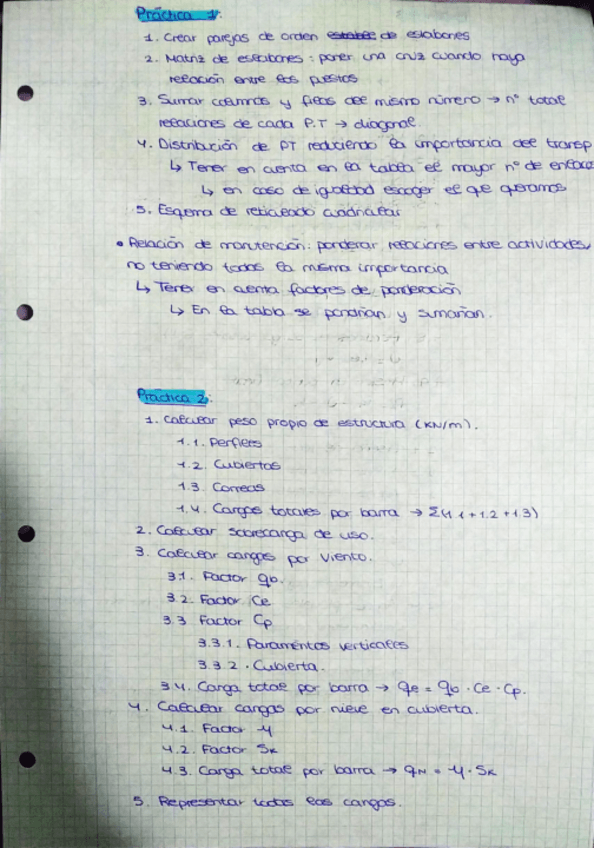 Práctica 1:
1. Crear parejas de orden de eslabones
2. Matriz de eslabones: poner una cruz cuando haya
relación entre los puestos
3. Sumar columnas y filas del mismo número → nº total
relaciones de cada P.T → diagonal.
4. Distribución de PT reduciendo la importancia del transp
↳ Tener en cuenta en la tabla el mayor nº de enlace
↳ en caso de igualdad escoger el que queramos
5. Esquema de reticulado cuadricular
• Relación de manutención: ponderar relaciones entre actividades,
no teniendo todas la misma importancia
↳ Tener en cuenta factores de ponderación
↳ En la tabla se pondrían y sumarían.
Práctica 2:
1. Calcular peso propio de estructura (KN/m).
1.1. Perfiles
1.2. Cubiertas
1.3. Correas
1.4. Cargas totales por barra → Σ(1.1+1.2+1.3)
2. Calcular sobrecarga de uso.
3. Calcular cargas por viento.
3.1. Factor qb.
3.2. Factor Ce
3.3 Factor Cp
3.3.1. Paramentos verticales
3.3.2. Cubierta.
3.4. Carga total por barra → qe = qb · Ce · Cp.
4. Calcular cargas por nieve en cubierta.
4.1. Factor μ
4.2. Factor Sk
4.3. Carga total por barra → qN = μ · Sk
5. Representar todas las cargas.